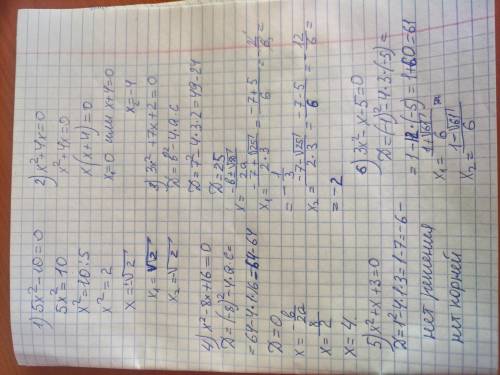 1) 5x²-10=0
5x²=10
x²=10:5
x²=2
x=±√2
x₁=√2
x₂=-√2
2) x²-4x=0
x²+4x=0
x(x+4)=0
x₁=0 или x+4=0
x₂=-4
3) 3x²+7x+2=0
D=b²-4·a·c
D=7²-4·3·2=49-24
D=25
x=-b±√D/2a
x₁=-7+√25/2·3=-7+5/6=-2/6=
=-1/3
x₂=-7-√25/2·3=-7-5/6=-12/6=
=-2
4) x²-8x+16=0
D=(-8)²-4·a·c=
=64-4·1·16=64-64
D=0
x=b/2a
x=8/2
x=4
5) x²+x+3=0
D=1²-4·1·3=1·7=-6-
нет решения
нет корней
6) 3x²-x-5=0
D=(-1)²-4·3·(-5)=
=1-12·(-5)=1+60=61
x₁=1+√61/6
x₂=1-√61/6